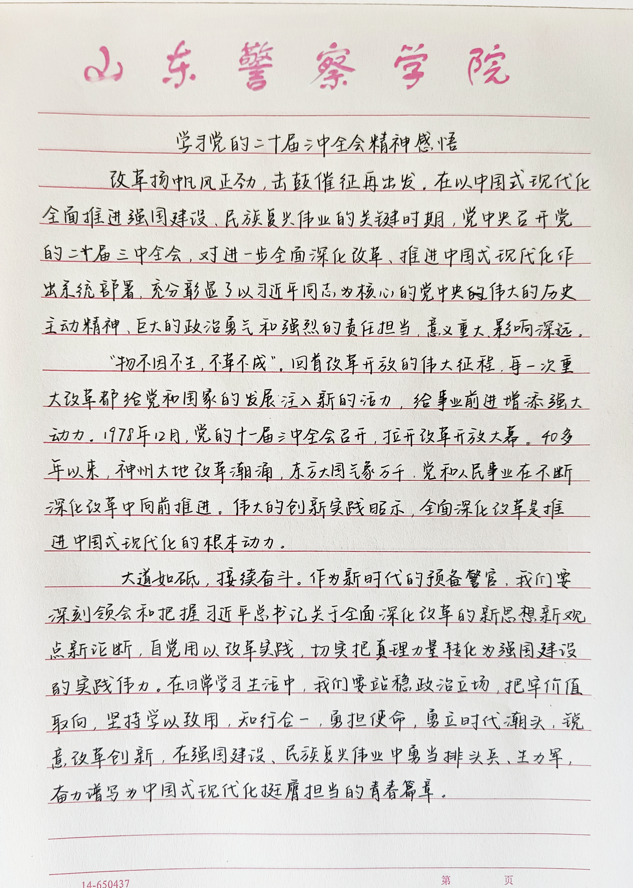 山东警察学院
学习党的二十届三中全会精神感悟
改革扬帆风正劲，击鼓催征再出发。在以中国式现代化
全面推进强国建设、民族复兴伟业的关键时期，党中央召开党
的二十届三中全会，对进一步全面深化改革、推进中国式现代化作
出系统部署，充分彰显了以习近平同志为核心的党中央的伟大的历史
主动精神、巨大的政治勇气和强烈的责任担当，意义重大，影响深远。
“物不因不生，不革不成”。回首改革开放的伟大征程，每一次重
大改革都给党和国家的发展注入新的活力，给事业前进增添强大
动力。1978年12月，党的十一届三中全会召开，拉开改革开放大幕。40多
年以来，神州大地改革潮涌，东方大国气象万千，党和人民事业在不断
深化改革中向前推进。伟大的创新实践昭示，全面深化改革是推
进中国式现代化的根本动力。
大道如砥，接续奋斗。作为新时代的预备警官，我们要
深刻领会和把握习近平总书记关于全面深化改革的新思想新观
点新论断，自觉用以改革实践，切实把真理力量转化为强国建设
的实践伟力。在日常学习生活中，我们要站稳政治立场，把牢价值
取向，坚持学以致用，知行合一，勇担使命，勇立时代潮头，锐
意改革创新，在强国建设、民族复兴伟业中勇当排头兵、生力军，
奋力谱写为中国式现代化挺膺担当的青春篇章。
14-650437 第 页